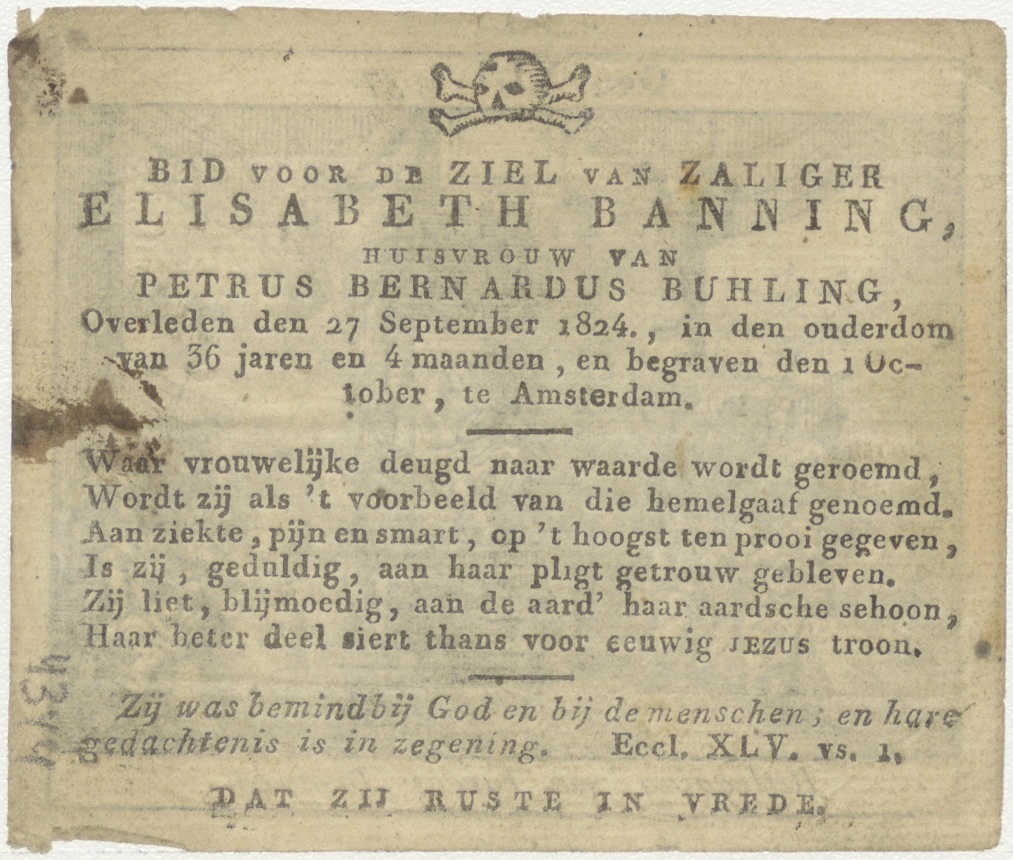 BID VOOR DE ZIEL VAN ZALIGER
ELISABETH BANNING,
HUISVROUW VAN
PETRUS BERNARDUS BUHLING,
Overleden den 27 September 1824., in den ouderdom
van 36 jaren en 4 maanden, en begraven den 1 Oc-
tober, te Amsterdam.
Waar vrouwelijke deugd naar waarde wordt geroemd,
Wordt zij als 't voorbeeld van die hemelgaaf genoemd.
Aan ziekte, pijn en smart, op 't hoogst ten prooi gegeven,
Is zij, geduldig, aan haar pligt getrouw gebleven.
Zij liet, blijmoedig, aan de aard' haar aardsche sehoon,
Haar beter deel siert thans voor eeuwig JEZUS troon.
Zij was bemind bij God en bij de menschen; en hare
gedachtenis is in zegening. Eccl. XLV. vs. 1.
DAT ZIJ RUSTE IN VREDE.